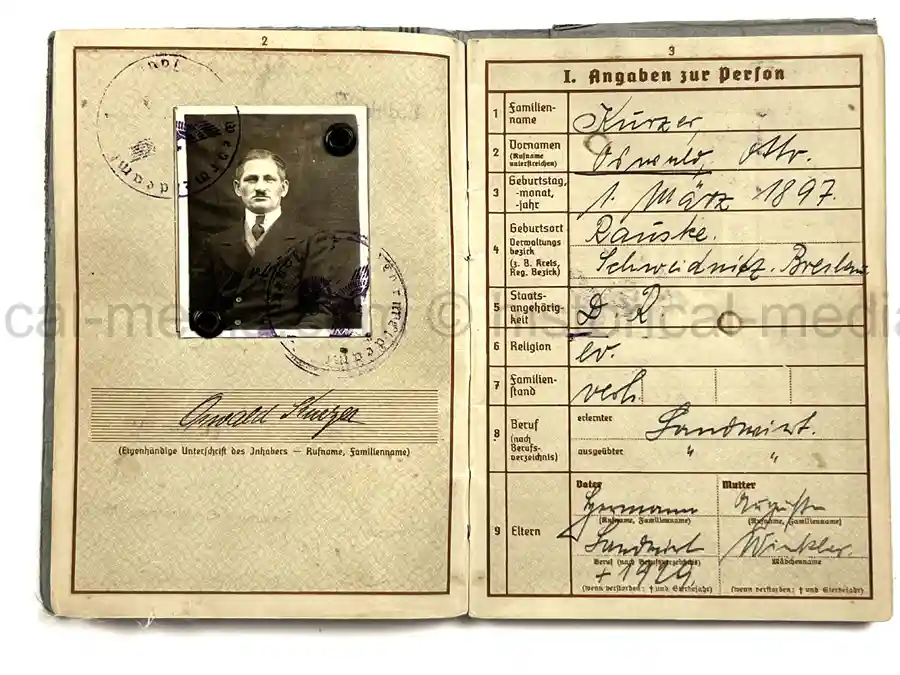 2
Oswald Kurzer
(Eigenhändige Unterschrift des Inhabers — Rufname, Familienname)
3
I. Angaben zur Person
1 Familien-
name
Kurzer
2 Vornamen
(Rufname
unterstreichen)
Oswald, Otto.
3 Geburtstag,
-monat,
-jahr
1. März 1897.
4 Geburtsort
Verwaltungs
bezirk
(z. B. Kreis,
Reg. Bezirk)
Rauske.
Schweidnitz. Breslau
5 Staats-
angehörig-
keit
D. R.
6 Religion
ev.
7 Familien-
stand
verh.
8 Beruf
(nach
Berufs-
verzeichnis)
erlernter
Landwirt.
ausgeübter
" "
9 Eltern
Vater
Hermann
(Rufname, Familienname)
Landwirt
Beruf (nach Berufsverzeichnis)
+ 1929.
(wenn verstorben: † und Sterbejahr)
Mutter
Auguste
(Rufname, Familienname)
Winkler.
Mädchenname
(wenn verstorben: † und Sterbejahr)